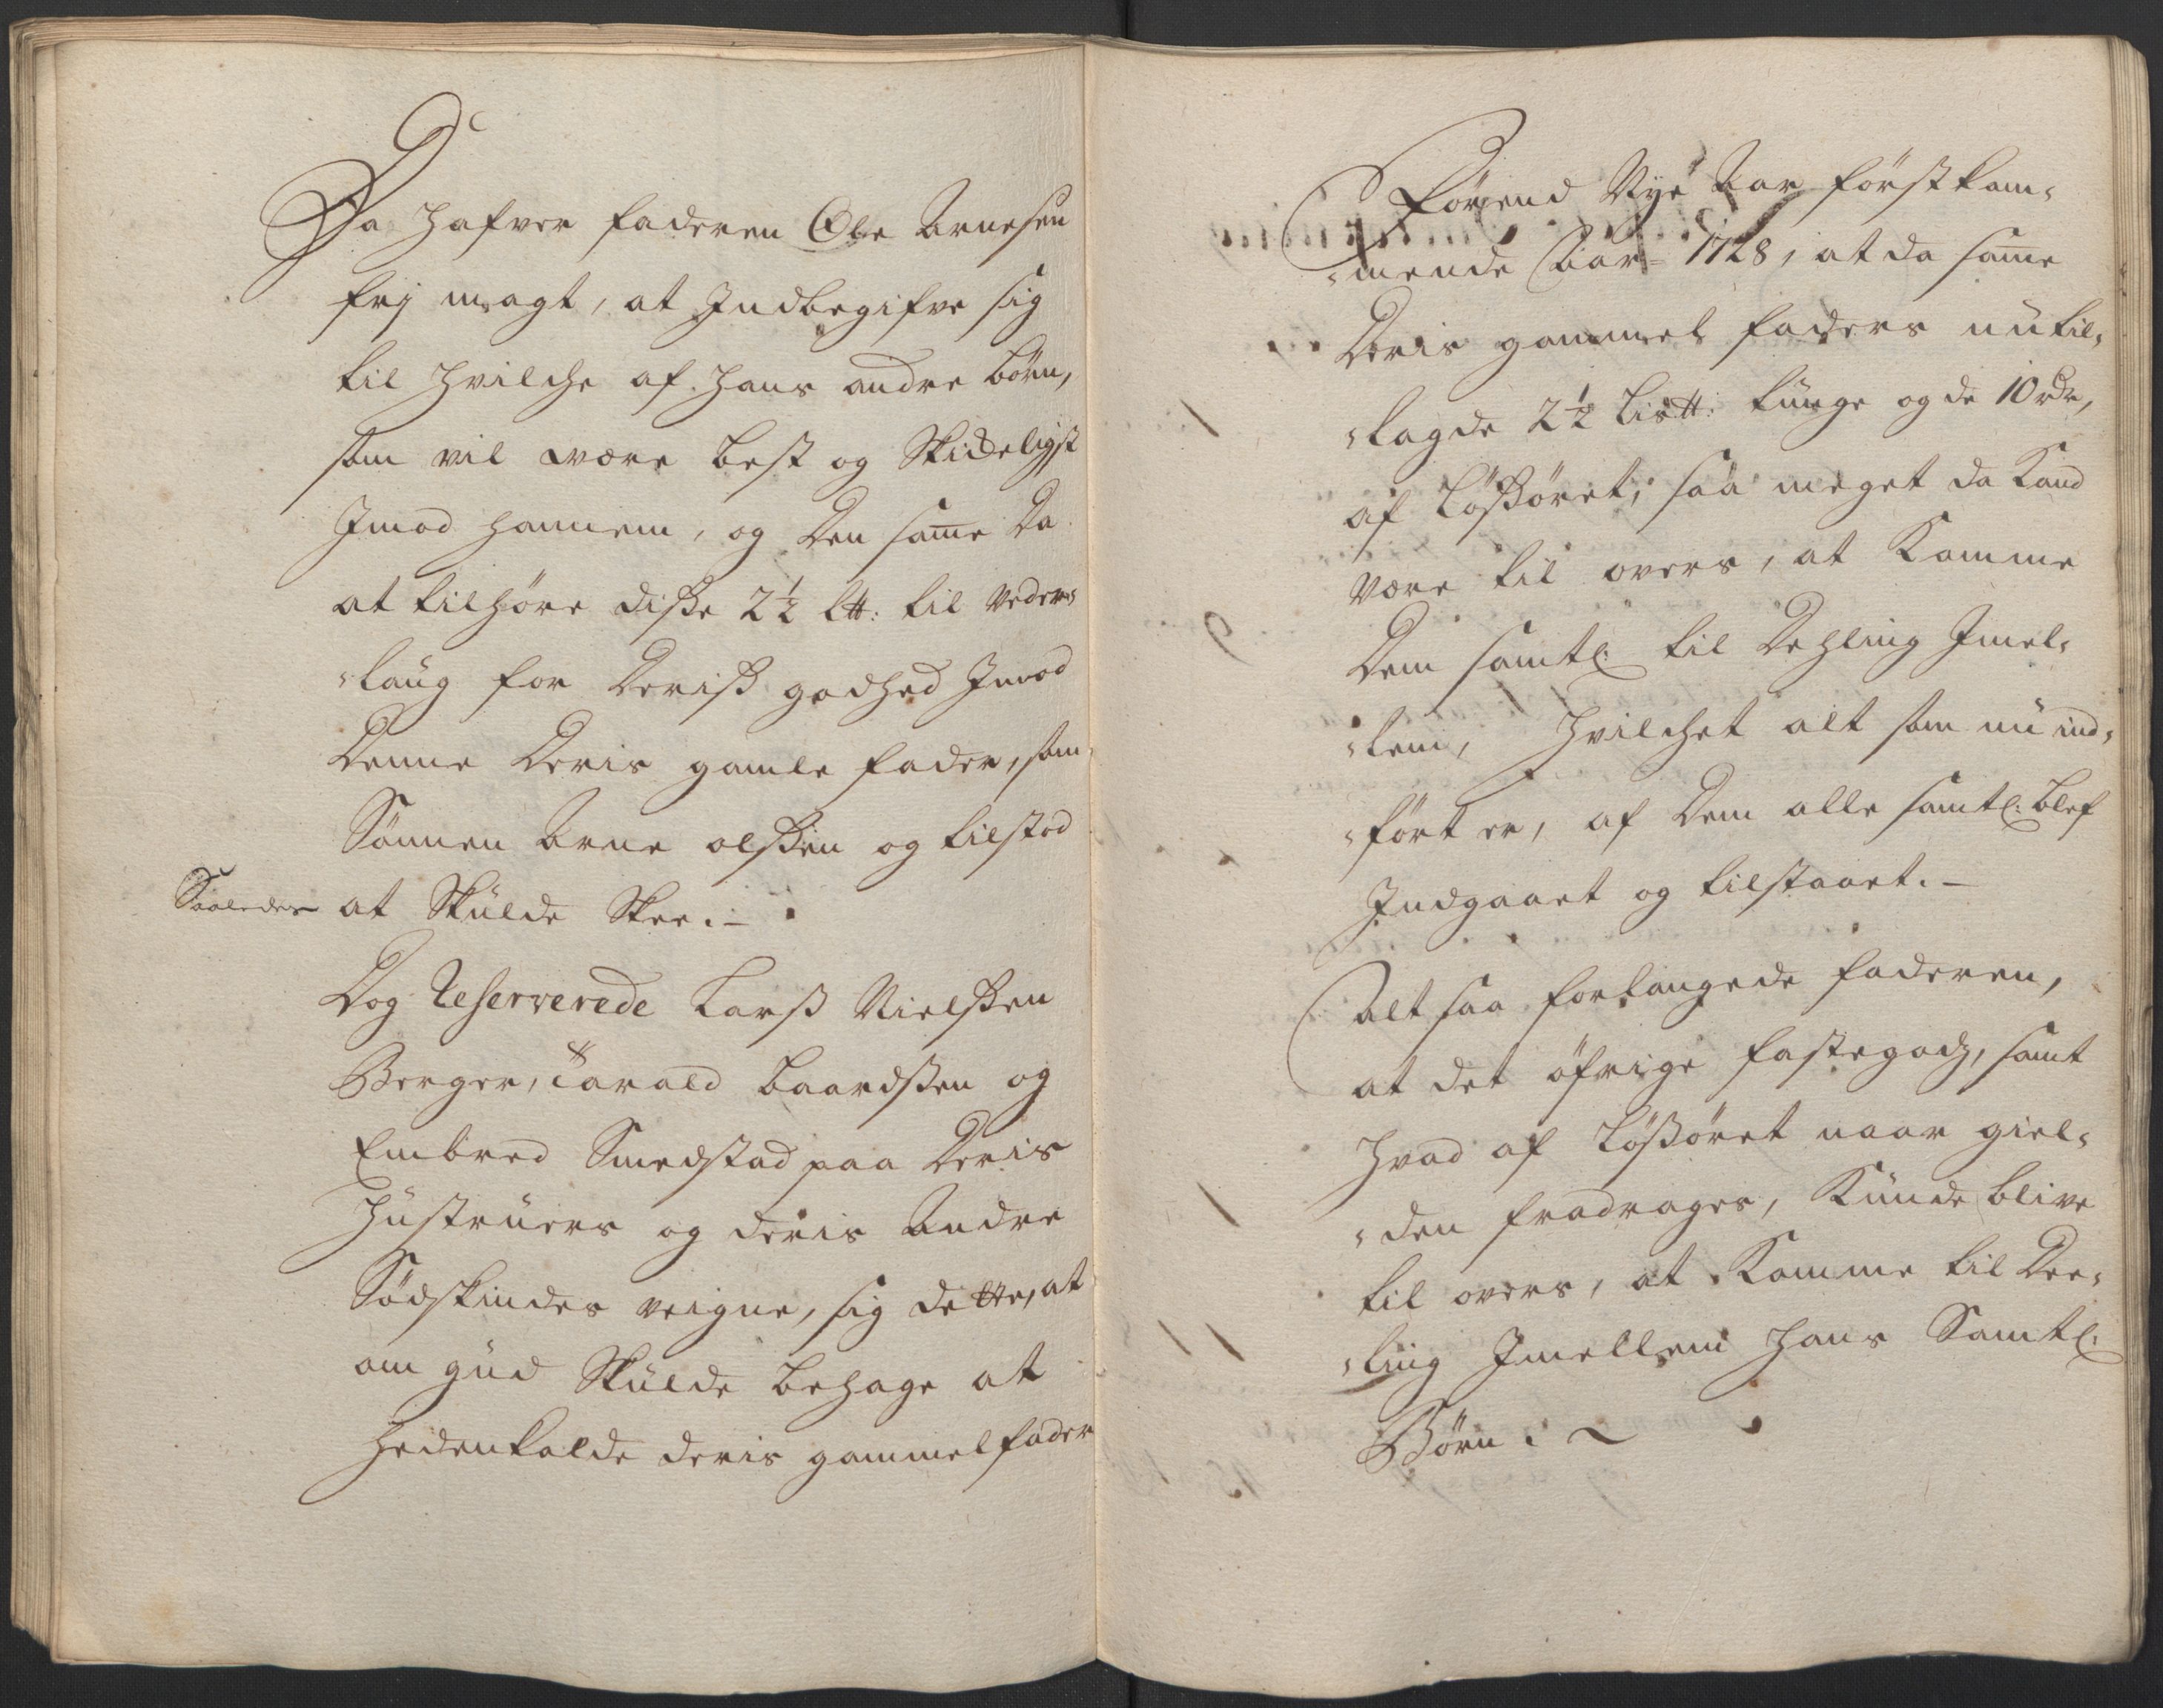 Da hafver faderen Ole Arnesen
frj magt, at Indbegifve sig
til hvilche af hans andre börn,
som vil være best og Skideligst
Imod hannem, og den same da
at tilhöre diße 2½ l℔: til veder¬
"laug for deriß godhed Imod
Denne deris gamle fader, som
Sönnen Arne olßen og tilstod
Saaledes at Skulde Skee.-
Dog Reserverede Larß Nielßen
Berger, Tarald Baardßen og
Embred Smedstad paa deris
Hustruers og deris Andre
Södskindes veigne, sig dette, at
om gud Skulde behage at
hedenkalde deris gammel fader
förend Nye Aar först kom¬
"mende Aar 1728, at da same
Deris gammel faders nu til¬
"lagde 2½ Lis℔: tunge og de 10 rdr,
af Lößöret, saa meget da kand
være til overs, at komme
dem samtl: til dehling Imel¬
"lem, hvilchet alt som nu ind¬
"fört er, af dem alle samtl: blef
Indgaaet og tilstaaet.-
Alt saa forlangede faderen,
at det öfrige fastegodz, samt
hvad af Lößöret naar giel¬
"den fradrages, kunde blive
til overs, at komme til dee¬
"ling Imellem hans Samtl:
Börn.